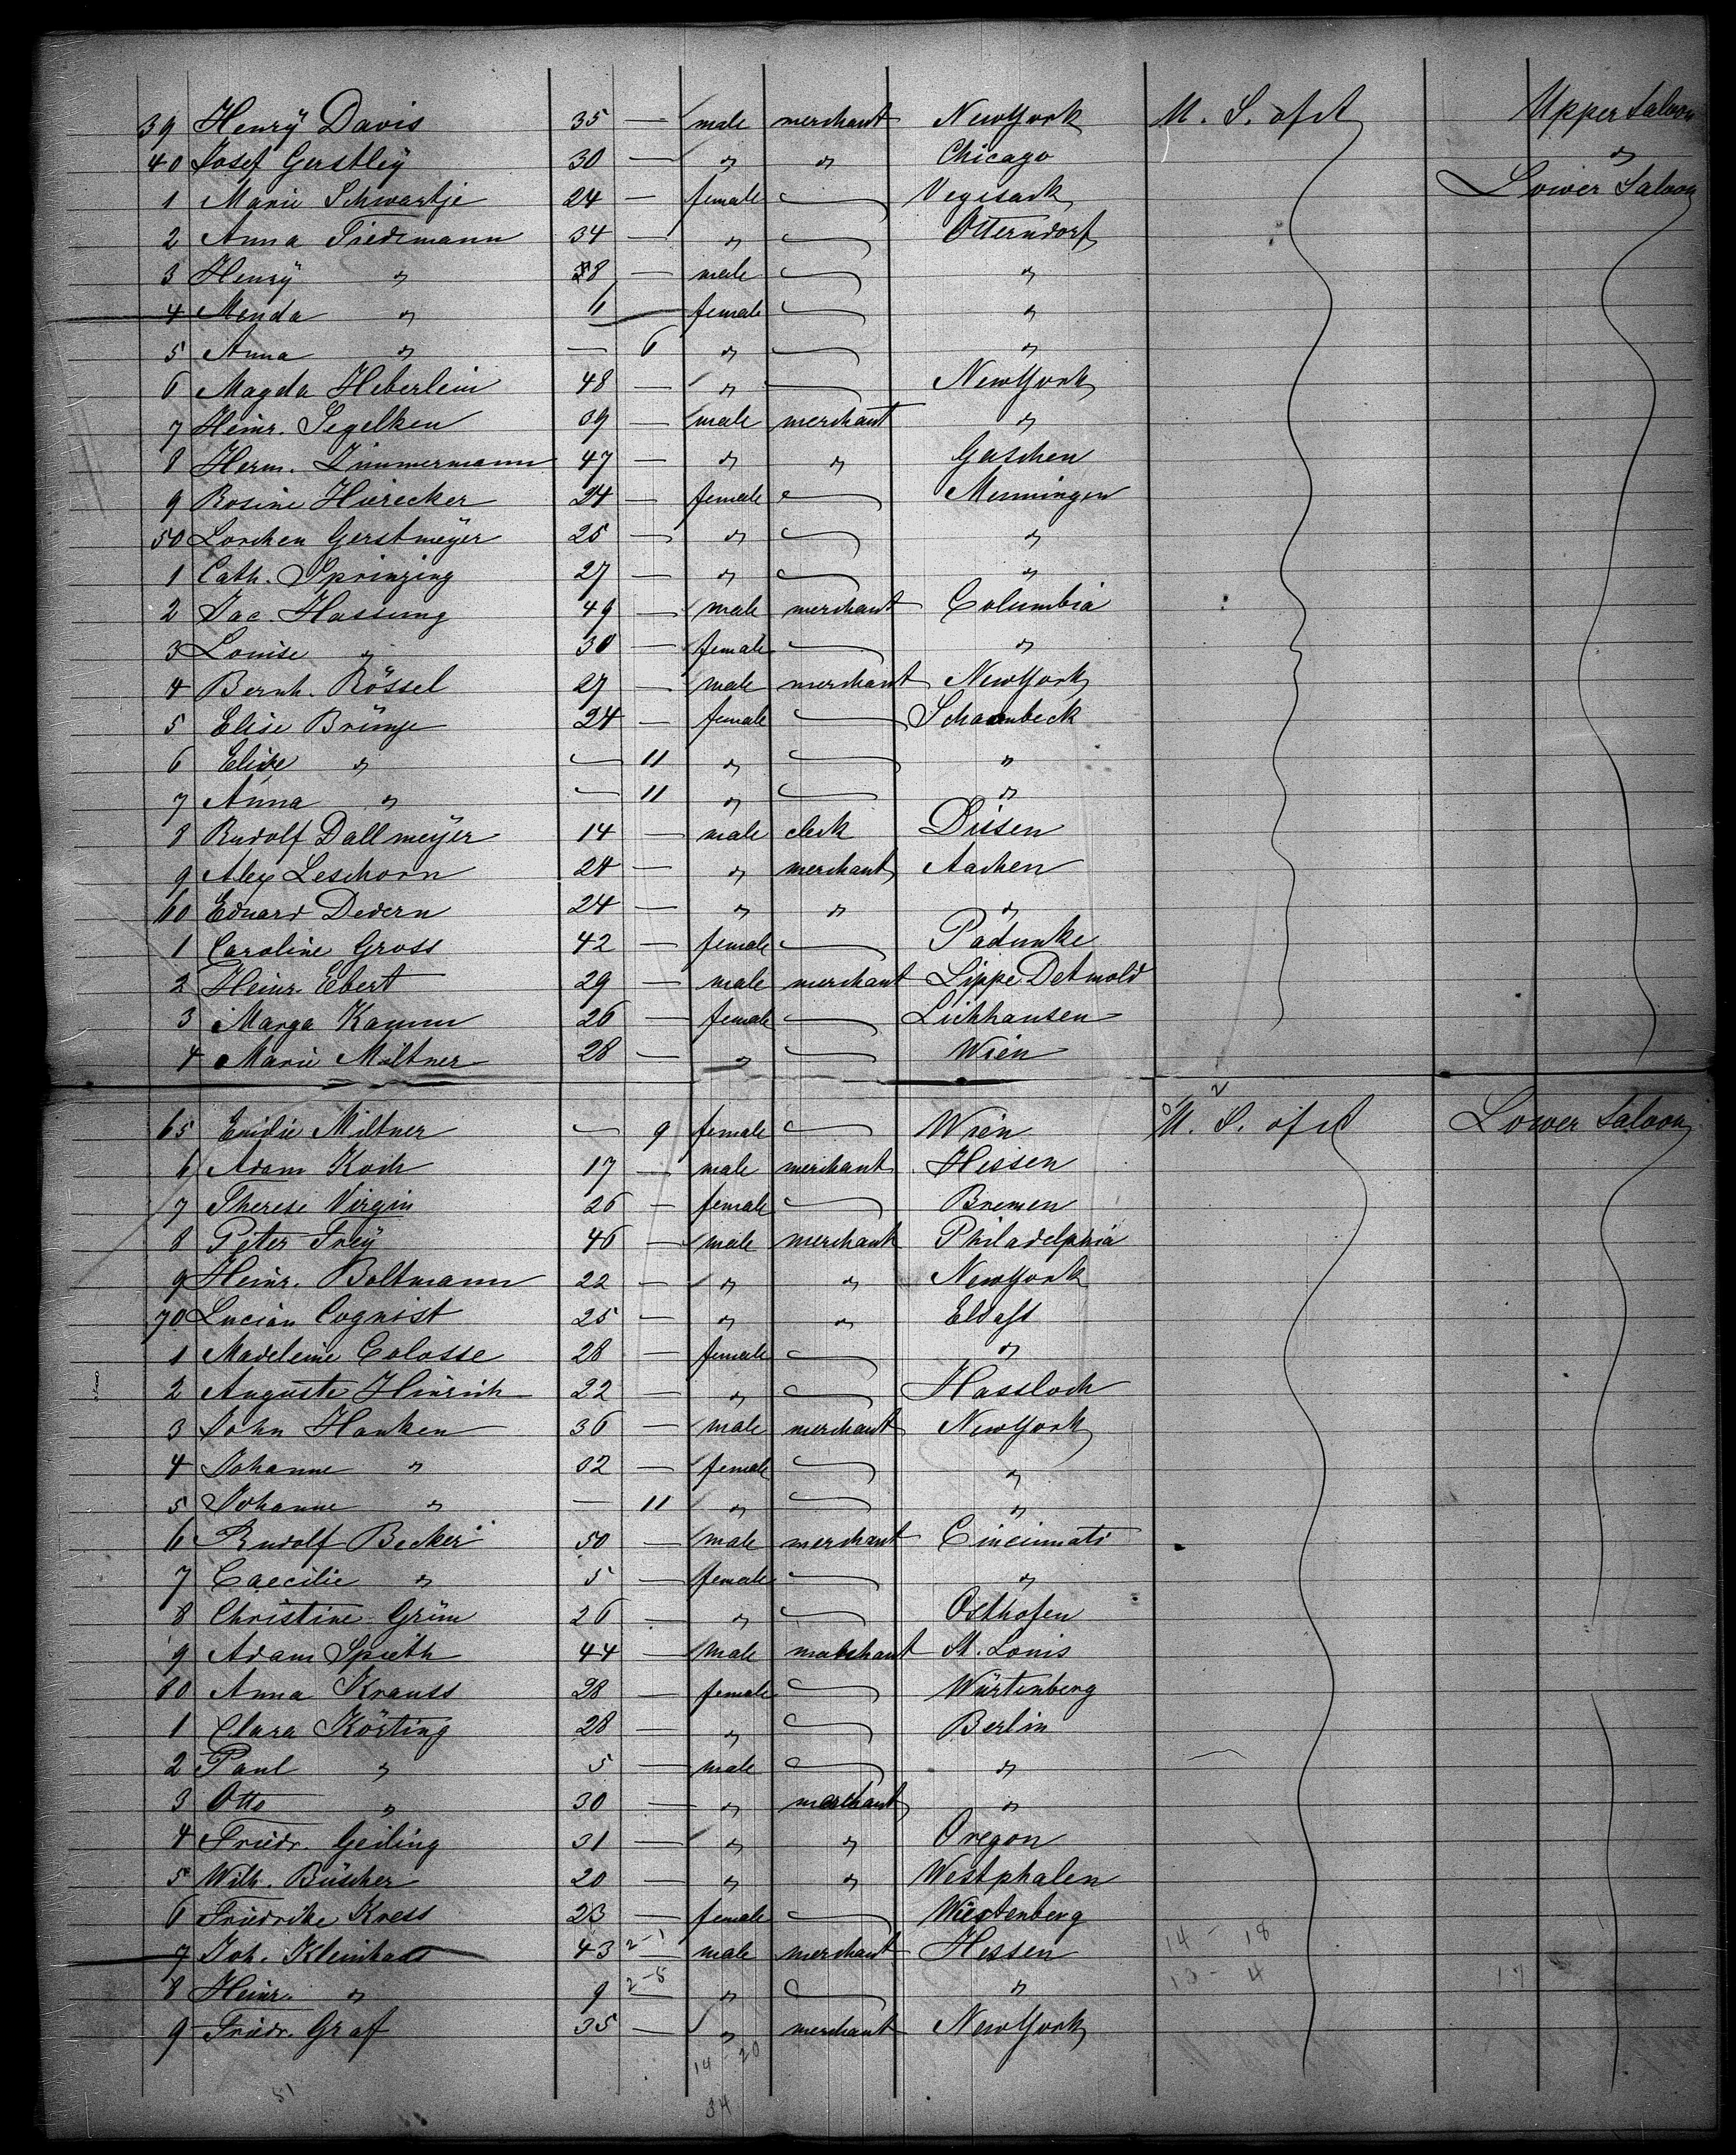 39 Henry Davis 35 — male merchant New York U. S. of A Upper Saloon
40 Josef Gerstley 30 — " " Chicago "
1 Marie Schwartje 24 — female — Vegesack Lower Saloon
2 Anna Tiedemann 34 — " — Otterndorf
3 Henry " 8 — male — "
4 Menda " 6 — female — "
5 Anna " — 6 " — "
6 Magda Heberlein 48 — " — New York
7 Heinr. Segelken 39 — male merchant "
8 Herm. Zimmermann 47 — " " Gaschen
9 Rosine Hierecker 24 — female — Menningen
50 Lorchen Gerstmeyer 25 — " — "
1 Cath. Sprinzing 27 — " — "
2 Jac. Hassung 49 — male merchant Columbia
3 Louise " 30 — female — "
4 Bernh. Rössel 27 — male merchant New York
5 Elise Brünje 24 — female — Schambeck
6 Elise " — 11 " — "
7 Anna " — 11 " — "
8 Rudolf Dallmeyer 14 — male clerk Dissen
9 Alex Leschorn 24 — " merchant Aachen
60 Eduard Dedern 24 — " " "
1 Caroline Gross 42 — female — Padunke
2 Heinr. Ebert 29 — male merchant Lippe Detmold
3 Marga Kamm 26 — female — Lichhausen
4 Marie Miltner 28 — " — Wien
65 Emilie Miltner — 9 female — Wien U. S. of A Lower Saloon
6 Adam Koch 17 — male merchant Hessen
7 Therese Virgin 26 — female — Bremen
8 Peter Frey 46 — male merchant Philadelphia
9 Heinr. Boltmann 22 — " " New York
70 Lucian Cognist 25 — " " Elsass
1 Madeleine Colosse 28 — female — "
2 Auguste Hinrich 22 — " — Hassloch
3 John Hanken 36 — male merchant New York
4 Johanne " 32 — female — "
5 Johanne " — 11 " — "
6 Rudolf Becker 50 — male merchant Cincinnati
7 Caecilie " 5 — female — "
8 Christine Grün 26 — " — Osthofen
9 Adam Spieth 44 — male merchant St. Louis
80 Anna Krauss 28 — female — Würtenberg
1 Clara Körting 28 — " — Berlin
2 Paul " 5 — male — "
3 Otto " 30 — " merchant "
4 Friedr. Geiling 31 — " " Oregon
5 Wilh. Büscher 20 — " " Westphalen
6 Friedrike Kress 23 — female — Würtenberg
7 Joh. Kleinhans 43 2-1 male merchant Hessen 14 - 18
8 Heinr. " 9 2-8 " — " 13 - 4 17
9 Friedr. Graf 35 — " merchant New York
14 - 20
51 34